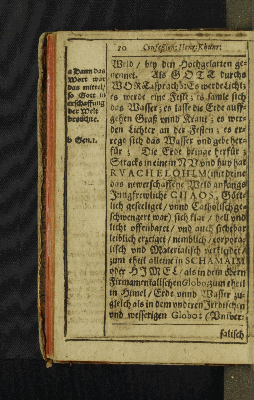 10 Confession: Henr: Khünr:
a Dann das
Wort war
das mittel/
so Gott in
erschaffung
der Welt
brauchte.
b Gen. 1.
Weld / bey den Hochgelarten ge-
nennet. Als GOTT durchs
WORT sprach: Es werde Licht;
es werde eine Feste; es samle sich
das Wasser; es lasse die Erde auff-
gehen Graß vnnd Kraut; es wer-
den Liechter an der Festen; es er-
rege sich das Wasser vnd gebe her-
für; Die Erde bringe herfür;
Stracks in einem NV vnd huy hat
RVACH ELOHIM
das newerschaffene Weld anfangs
Jungfrewliche CHAOS, Gött-
lich geseeliget / vnnd Catholisch ge-
schwengert war) sich klar / hell vnd
licht offenbaret / vnd auch sichtbar
leiblich erzeiget / nemblich / corpora-
lisch vnd Materialisch verkündet /
zum theil alleine in SCHAMAIM
oder HIMEL / als in dem Obern
Firmamentalischen Globo; zum theil
in Himel / Erde vnnd Wasser zu-
gleich als in dem vnderen Irdischen
vnd wesserigen Globo: (Vniver-
salisch